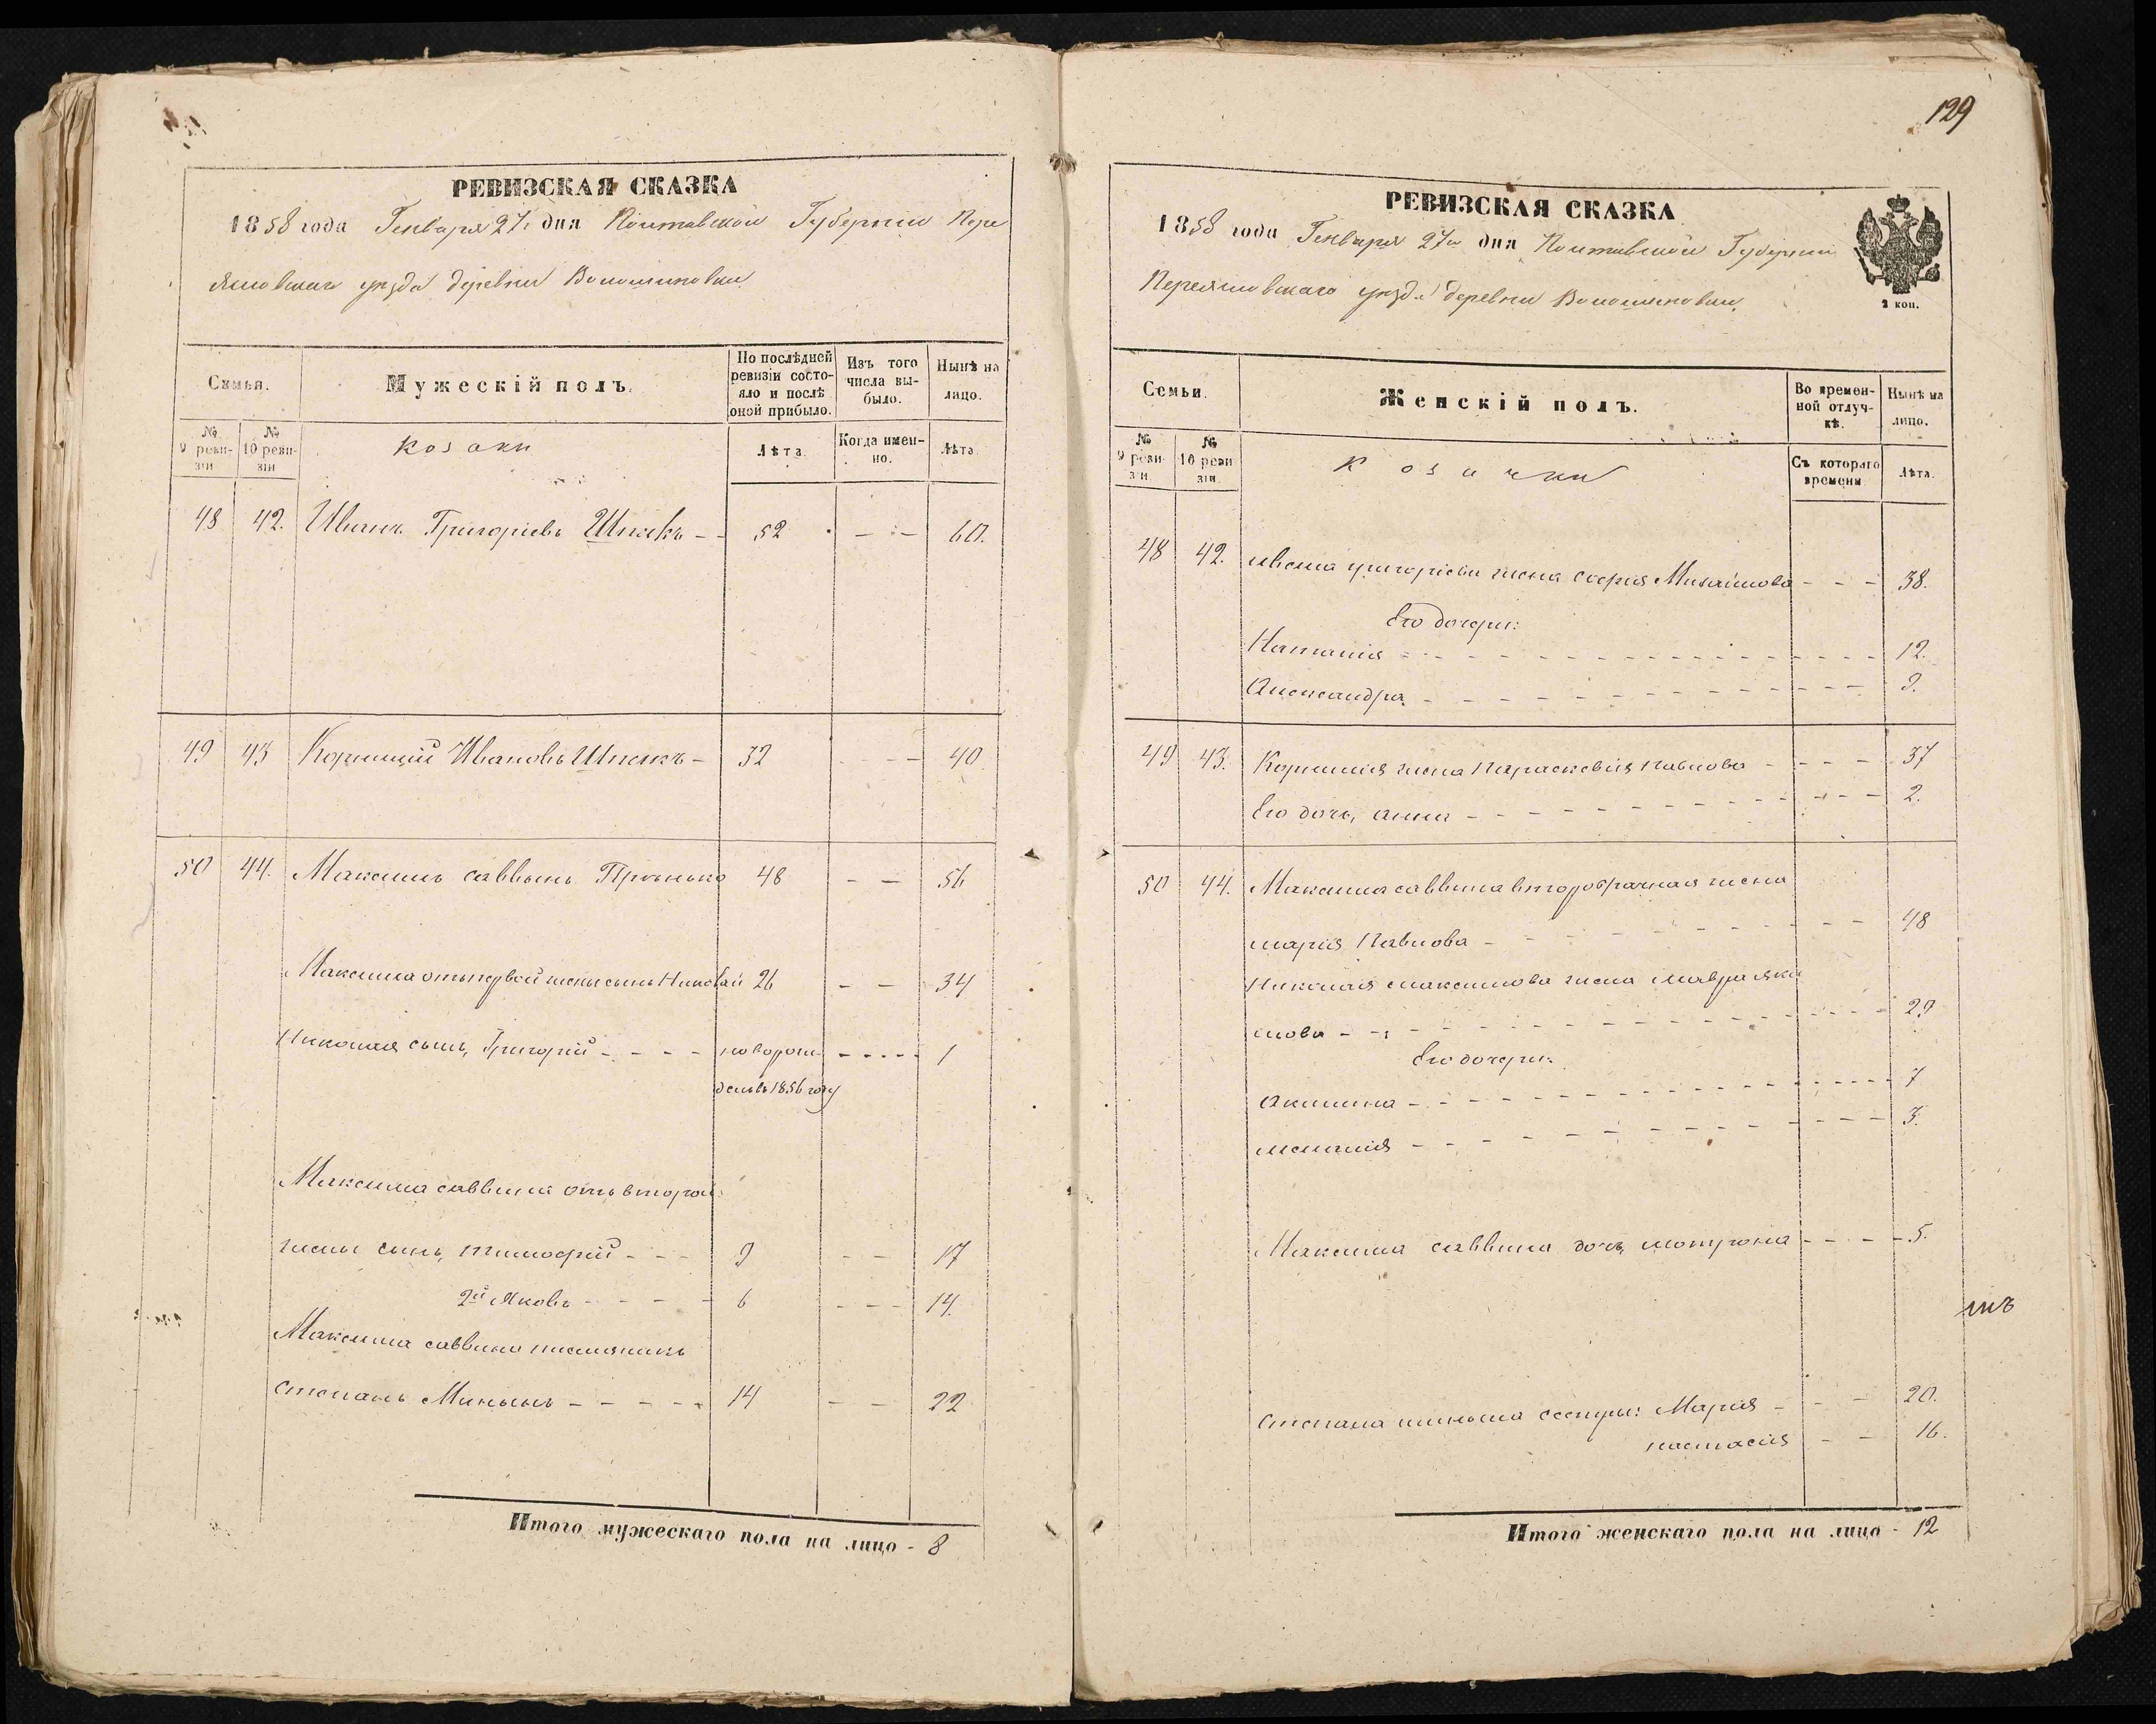 РЕВИЗСКАЯ СКАЗКА
1858 года Генваря 27 дня Полтавской Губерніи Пере
яславскаго уезда деревни Волошиновки
Семья.
Мужескій полъ.
По послѣдней ревизіи состояло и послѣ оной прибыло.
Изъ того числа выбыло.
Нынѣ на лицо.
№ 9 ревизіи
№ 10 ревизіи
Козаки
Лѣта.
Когда именно.
Лѣта.
48 42. Иванъ Григоріевъ - - 52 - - 60.
49 43 Корнилій Ивановъ - 32 - - - 40
50 44. Максимъ саввынъ 48 - - 56
Максима отъ первой жены сынъ Николай 26 - - 34
Николая сынъ, Григорій - - - - новорож - - - - - 1
денъ въ 1856 году
Максима саввина отъ второй
жены сынъ, тимофій - - - 9 - - 17
2й Яковъ - - - - 6 - - - 14.
Максима саввина племяникъ
степанъ Минынъ - - - - - 14 - - 22
Итого мужескаго пола на лицо - 8
129
РЕВИЗСКАЯ СКАЗКА
1858 года Генваря 27го дня Полтавской Губерніи
Переяславскаго уезда деревни Волошиновки
2 коп.
Семьи.
Женскій полъ.
Во временной отлучкѣ.
Нынѣ на лицо.
№ 9 ревизіи
№ 10 ревизіи
Козачки
Съ котораго времени
Лѣта.
48 42. ивана григоріева жена софія Михайлова - - - 38.
Его дочери:
Наталія - - - - 12.
Александра - - - - 9.
49 43. Корнилія жена Параскевія павлова - - - - 37
Его дочь, анна - - - - 2.
50 44. Максима саввина второбрачная жена
марія Павлова - - - - 48
Николая максимова жена мавра яки
мова - - - - 29
Его дочери:
Акилина - - - - 7
меланія - - - - 3.
Максима саввина дочь, мотрона - - - - 5.
Степана минына сестры: Марія - - - 20.
настасія - - 16.
Итого женскаго пола на лицо - 12